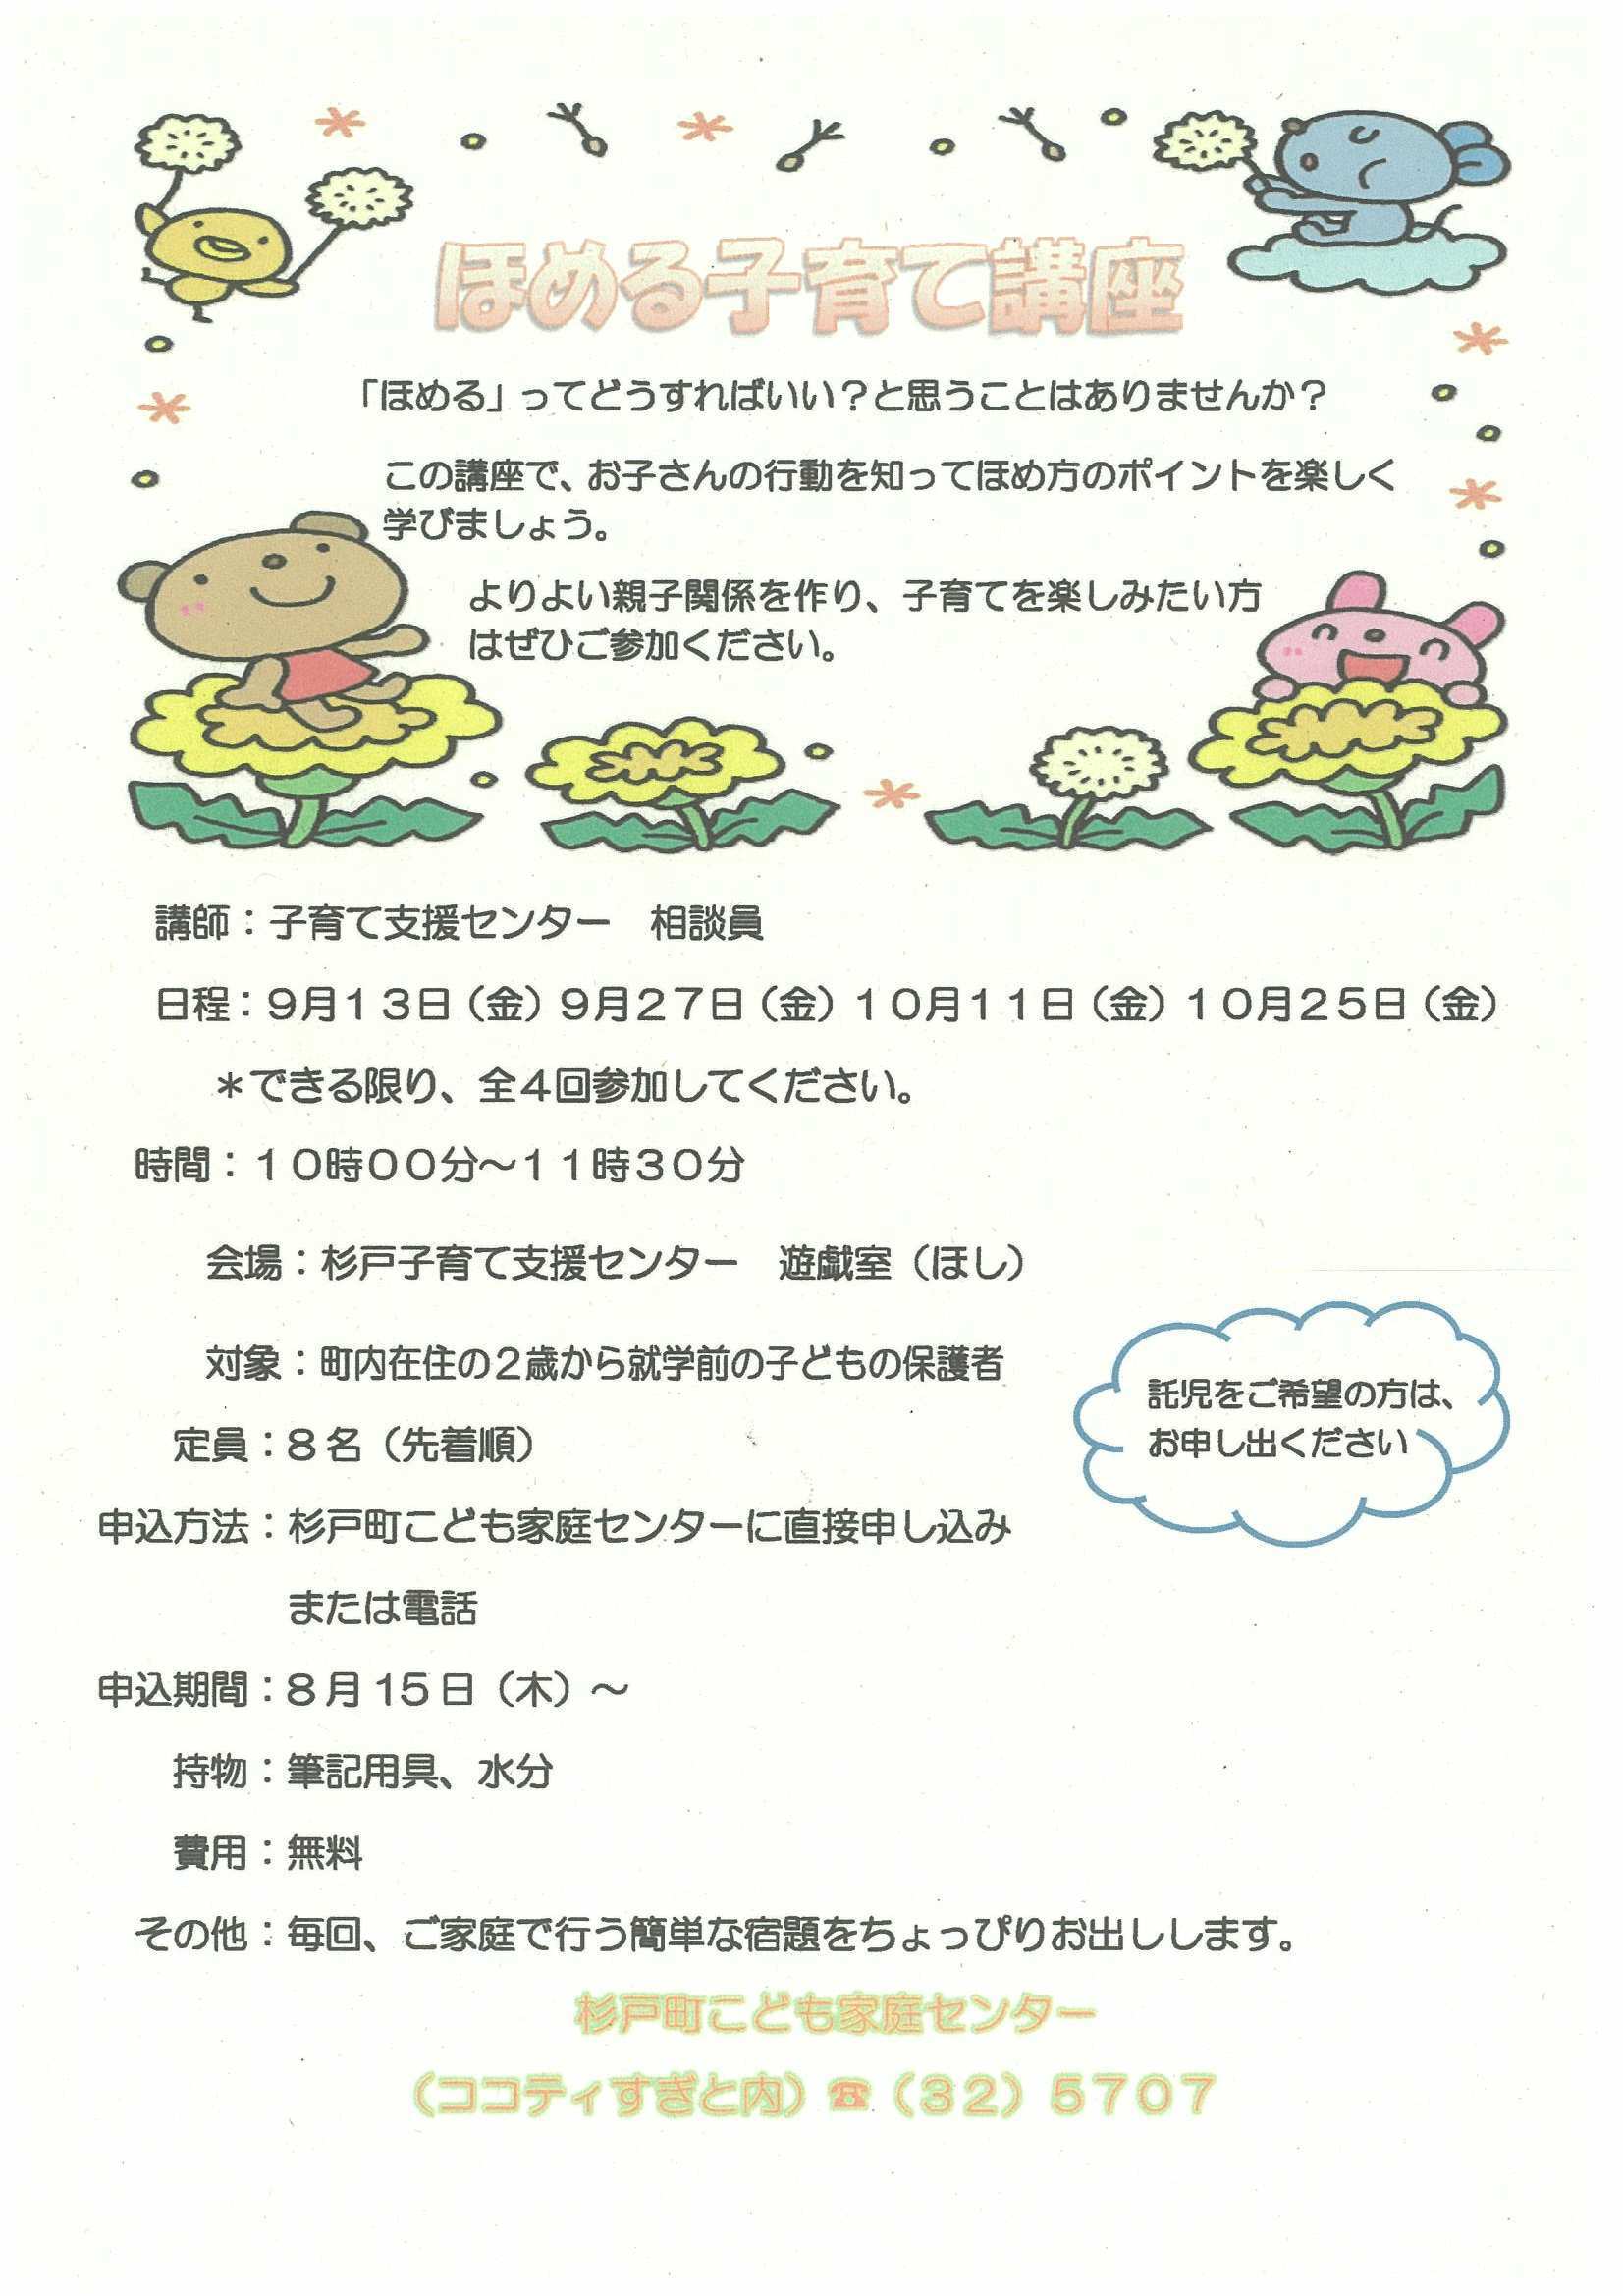 ほめる子育て講座
「ほめる」ってどうすればいい？と思うことはありませんか？
この講座で、お子さんの行動を知ってほめ方のポイントを楽しく
学びましょう。
よりよい親子関係を作り、子育てを楽しみたい方
はぜひご参加ください。
講師：子育て支援センター　相談員
日程：９月１３日（金）９月２７日（金）１０月１１日（金）１０月２５日（金）
＊できる限り、全４回参加してください。
時間：１０時００分～１１時３０分
会場：杉戸子育て支援センター　遊戯室（ほし）
対象：町内在住の２歳から就学前の子どもの保護者
託児をご希望の方は、
お申し出ください
定員：８名（先着順）
申込方法：杉戸町こども家庭センターに直接申し込み
または電話
申込期間：８月15日（木）～
持物：筆記用具、水分
費用：無料
その他：毎回、ご家庭で行う簡単な宿題をちょっぴりお出しします。
杉戸町こども家庭センター
（ココティすぎと内）☎（３２）５７０７